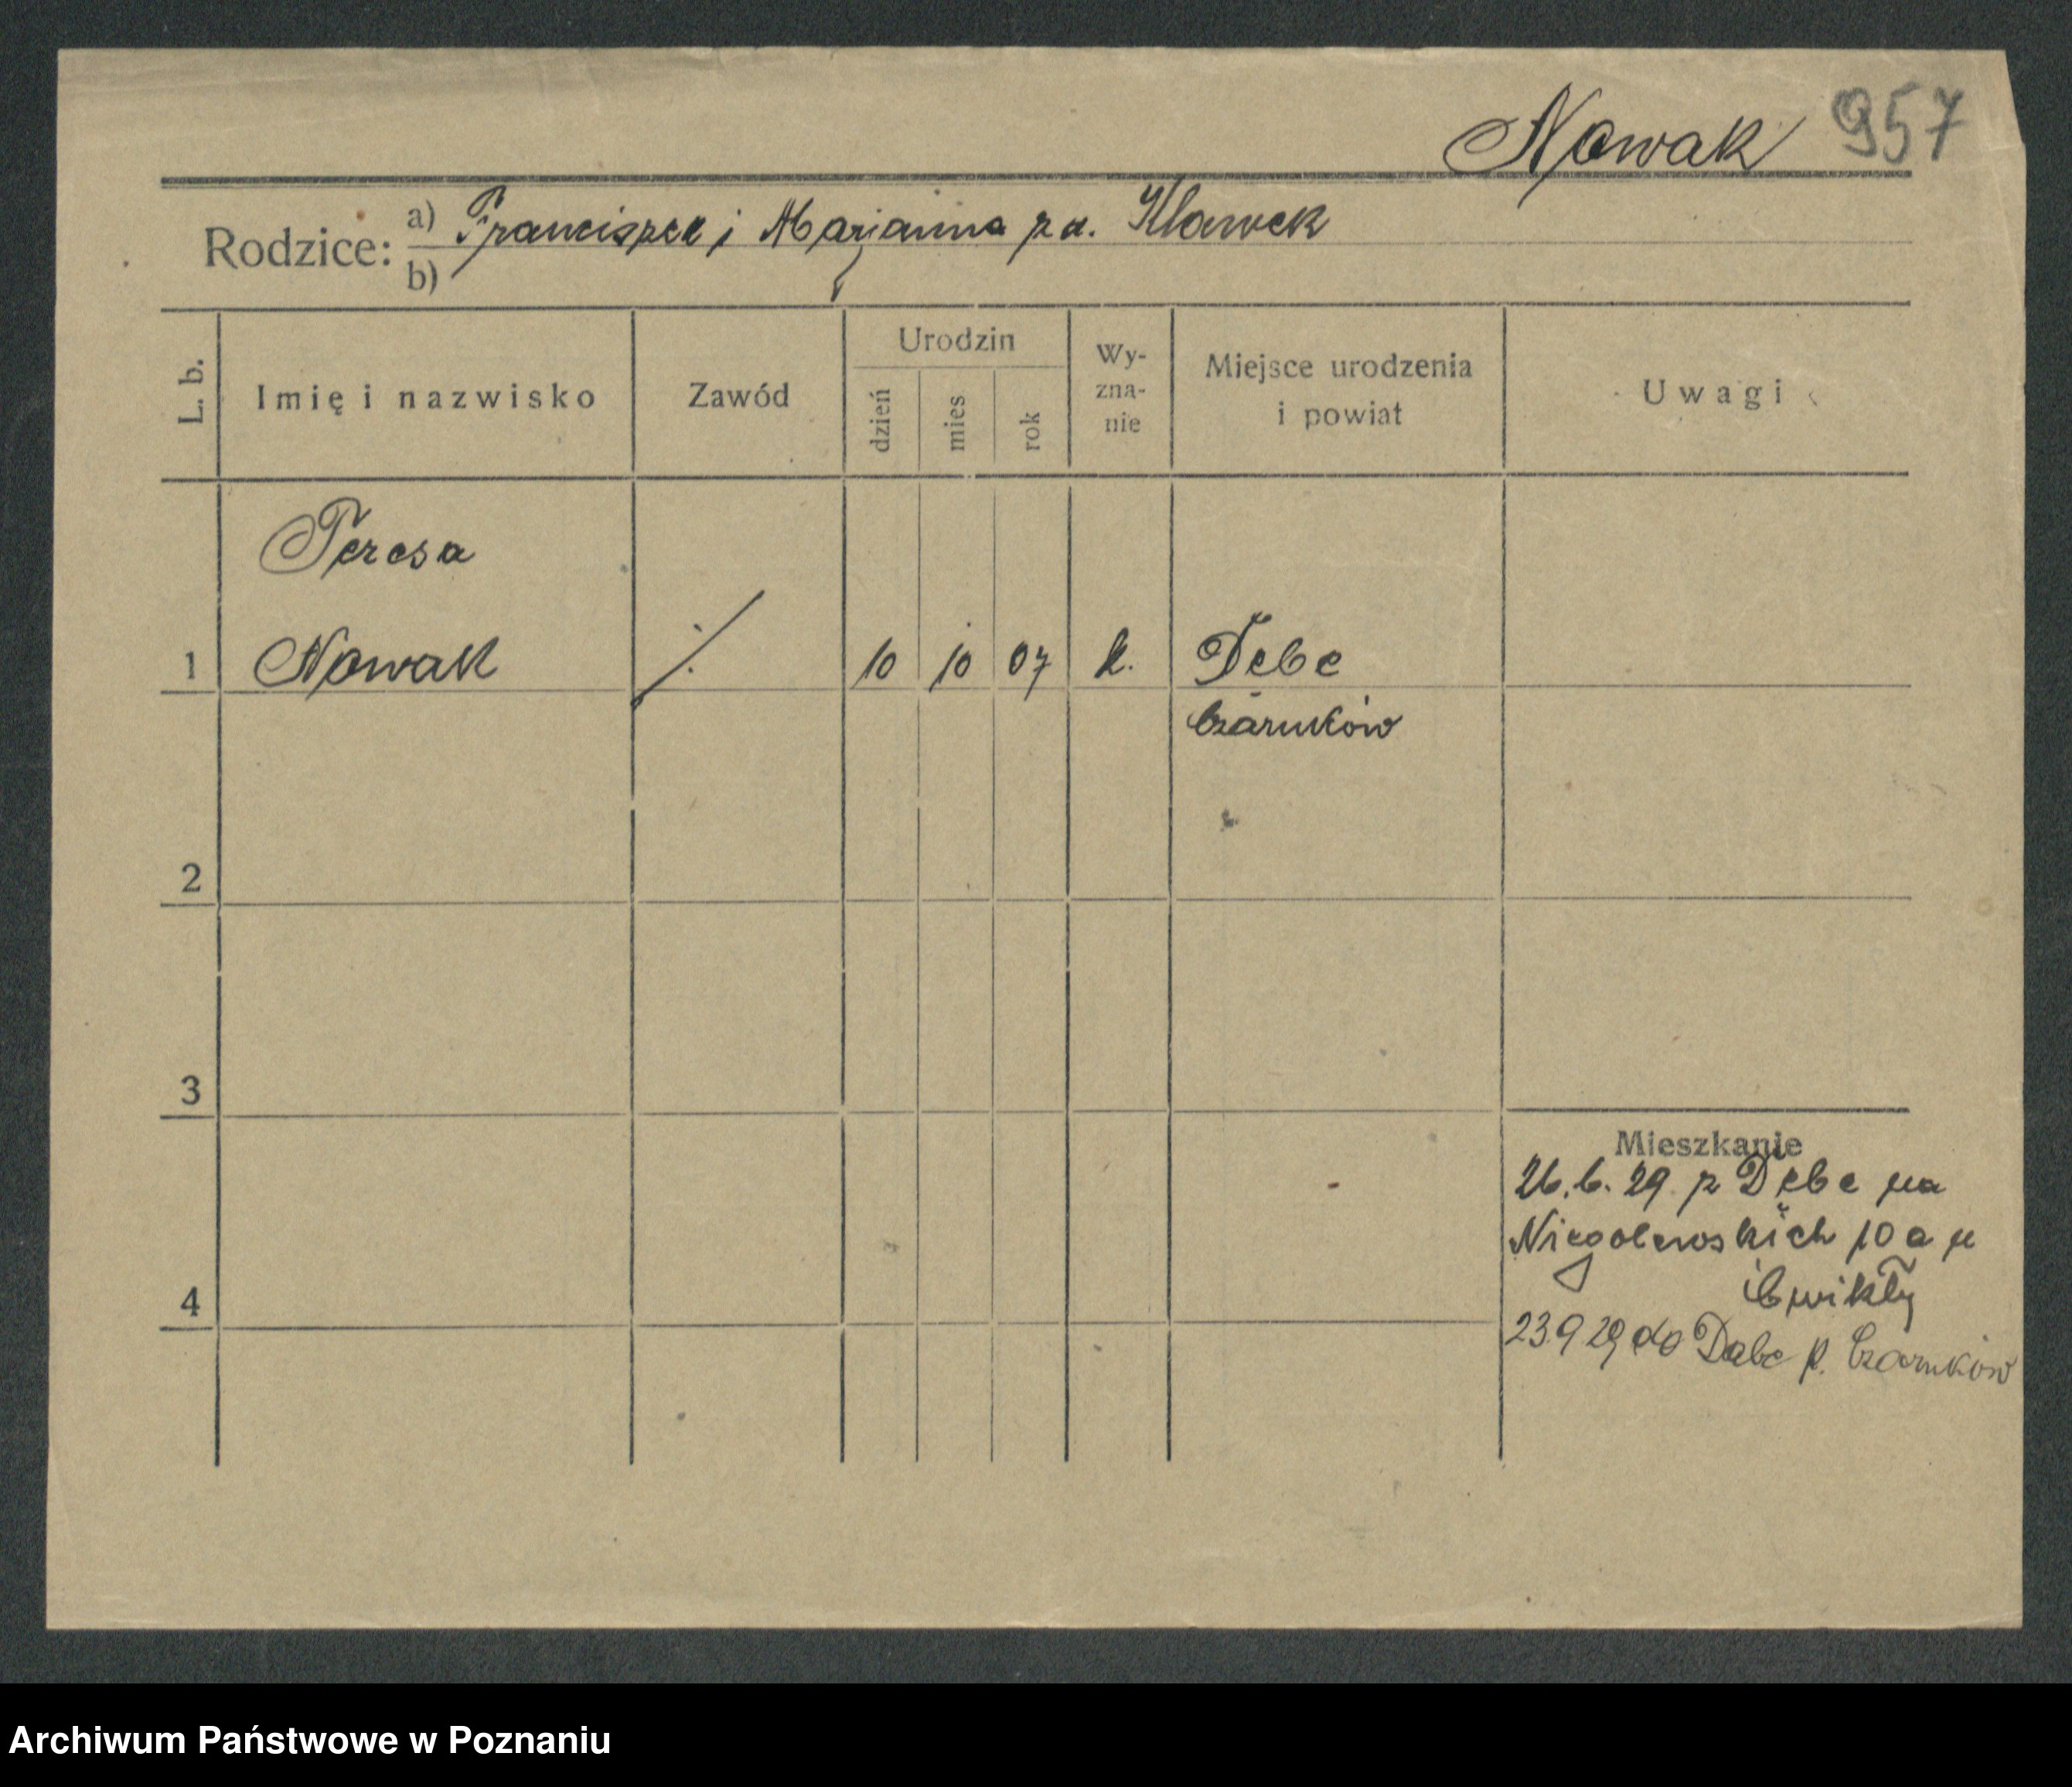 Nowak 957
Rodzice: a) Franciszek i Marjanna z d. Klawek
b)
L. b.
Imię i nazwisko
Zawód
Urodzin
dzień
mies
rok
Wy-
zna-
nie
Miejsce urodzenia
i powiat
Uwagi
Teresa
1 Nowak ./. 10 10 07 k. Dębe
Czarnków
2
3
4
Mieszkanie
26.6.29 z Dębe na
Niegolewskich 10a u
Ćwikły
23 9 29 do Dabe p. Czarnków
Archiwum Państwowe w Poznaniu